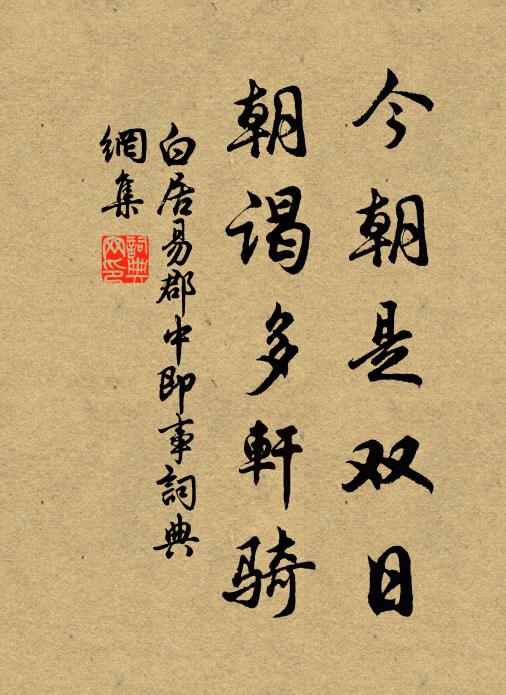 今朝是双日
朝谒多軒骑
白居易郡中即事詞典
網集
詞典
网印